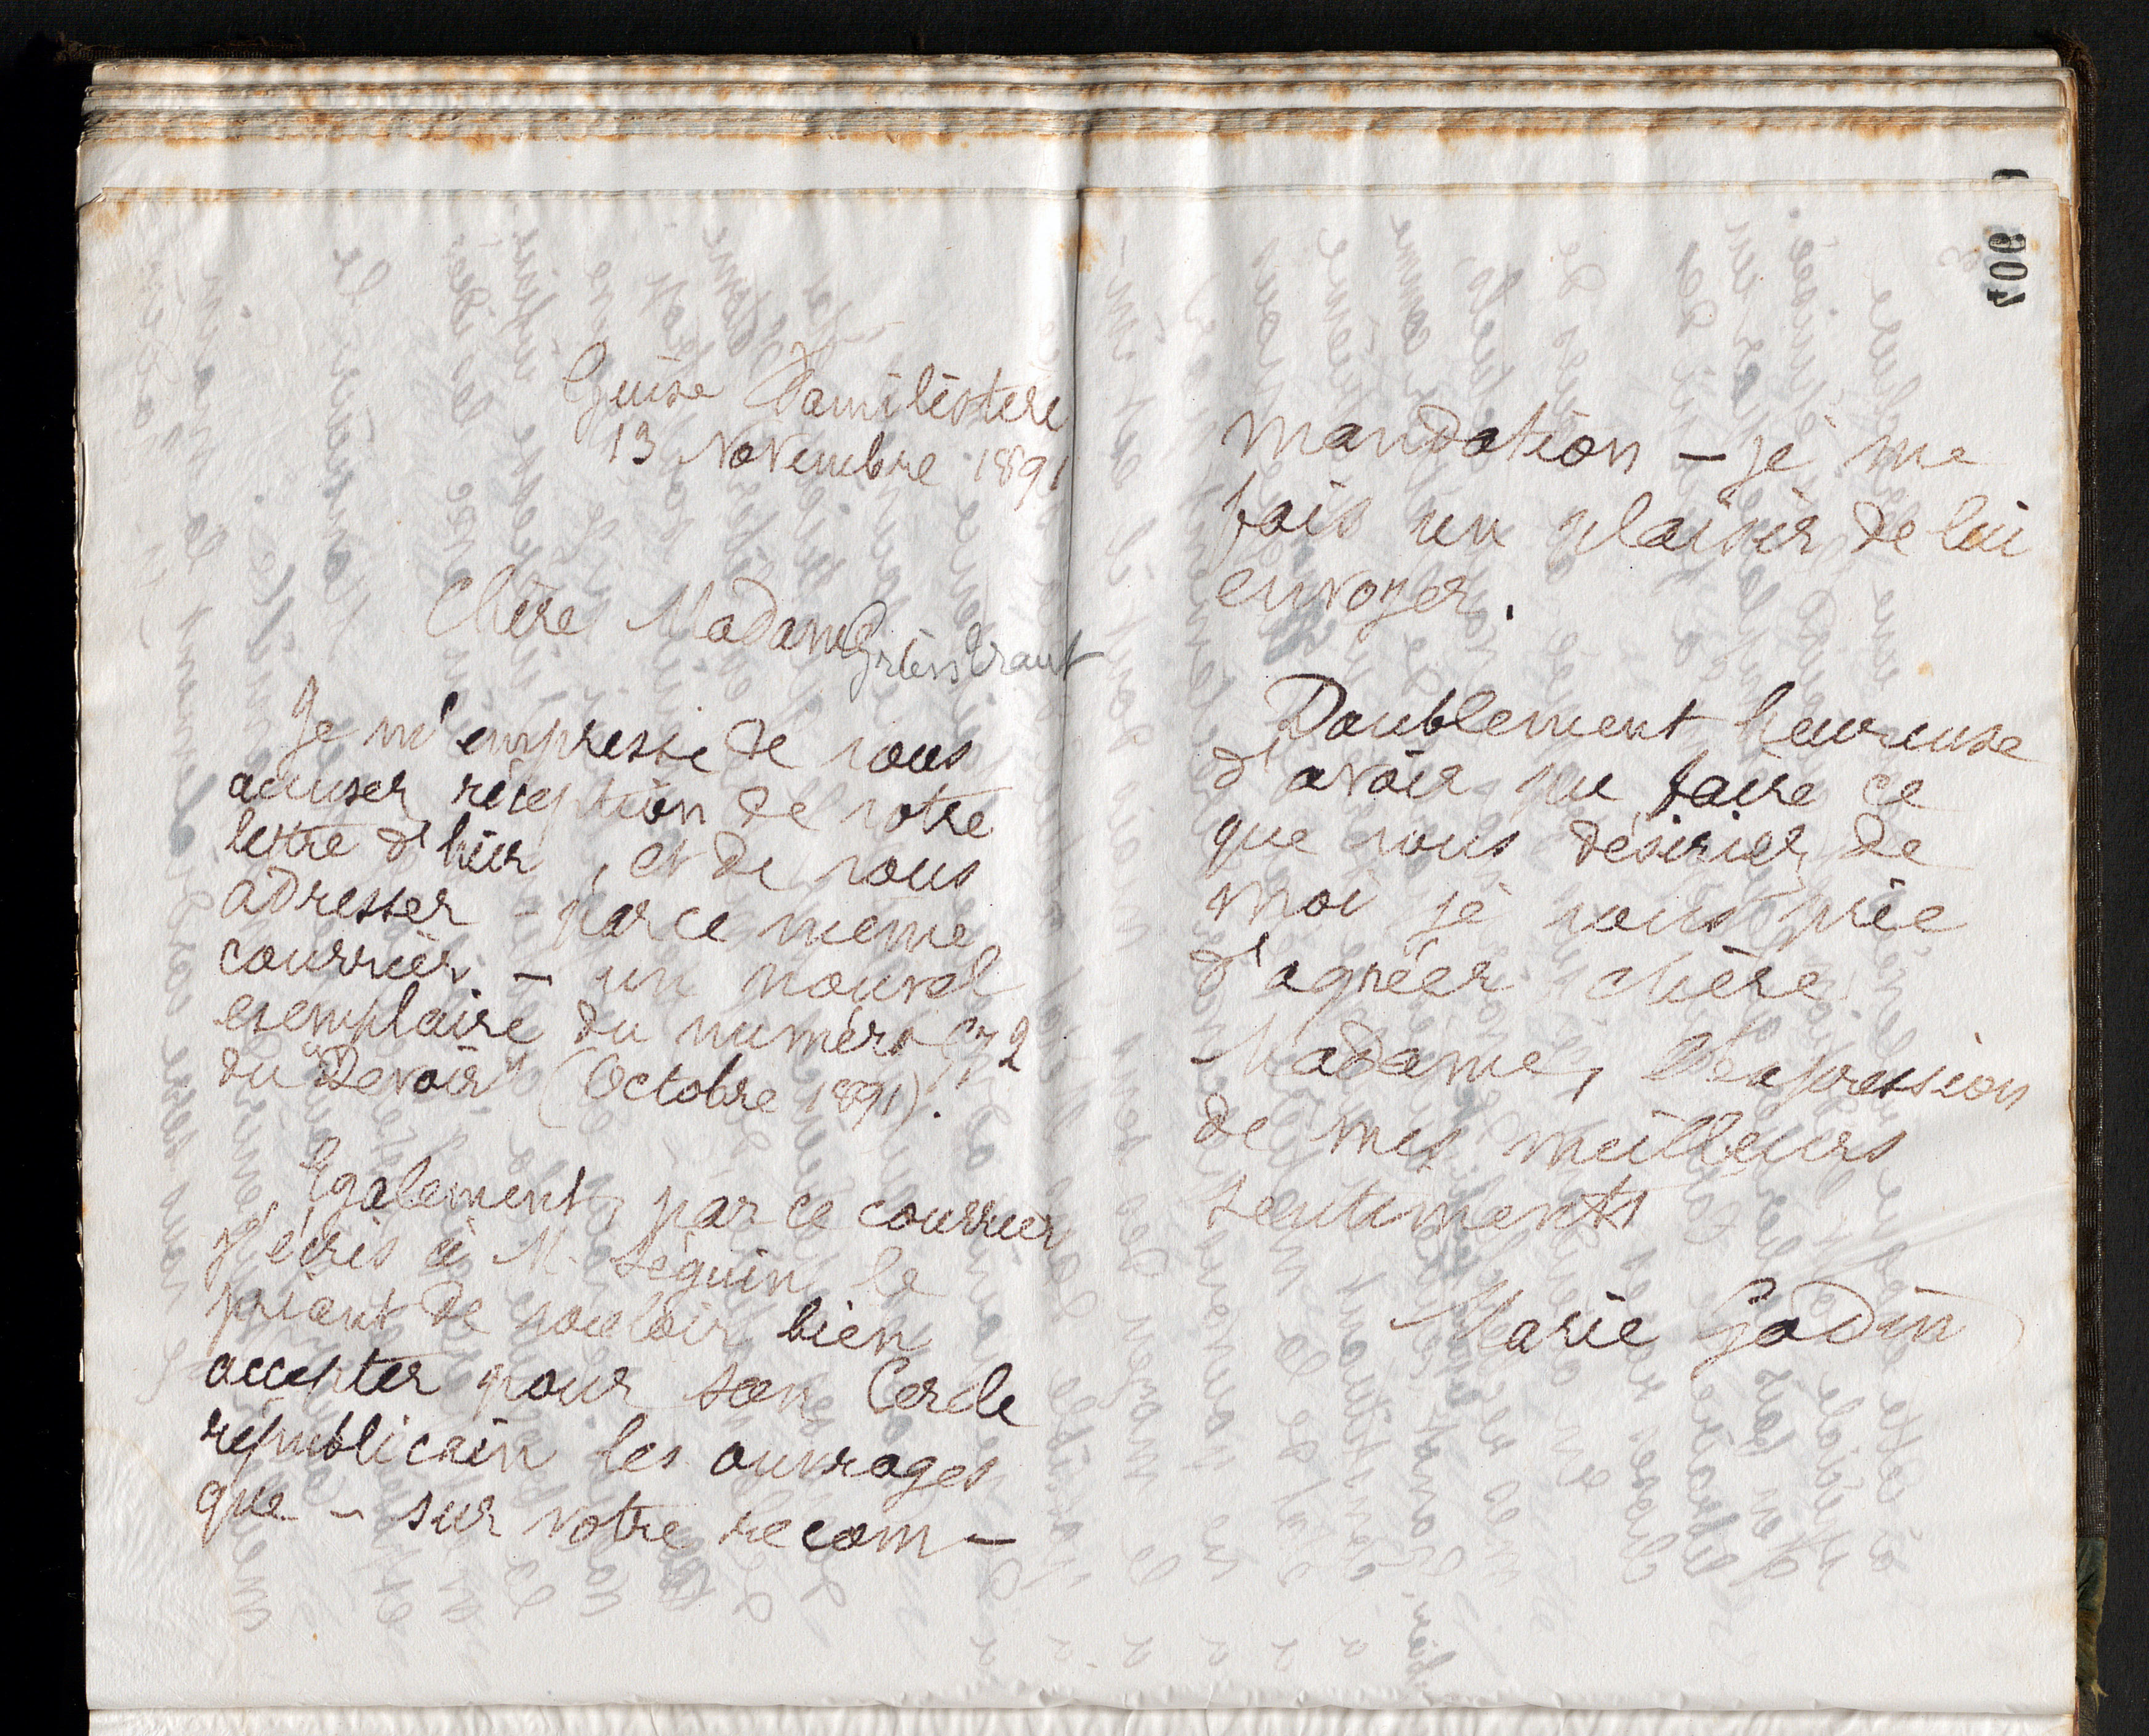 Guise Familistère
13 Novembre 1891
Chère Madame Griess traut
Je m'empresse de vous
accuser réception de votre
lettre d'hier, et de vous
adresser - par ce même
courrier - un nouvel
exemplaire du numéro
du "Devoir" (Octobre 1891).
Egalement, par ce courrier
j'écris à M. Séguin le
priant de vouloir bien
accepter pour son Cercle
républicain les ouvrages
que - sur votre recom-
mandation - je me
fais un plaisir de lui
envoyer.
Doublement heureuse
d'avoir pu faire ce
que vous désiriez de
moi je vous prie
d'agréer chère
Madame, l'expression
de mes meilleurs
sentiments
Marie Godin